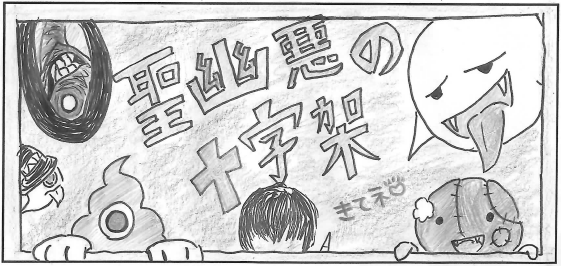 聖幽悪の
十字架
きてネ